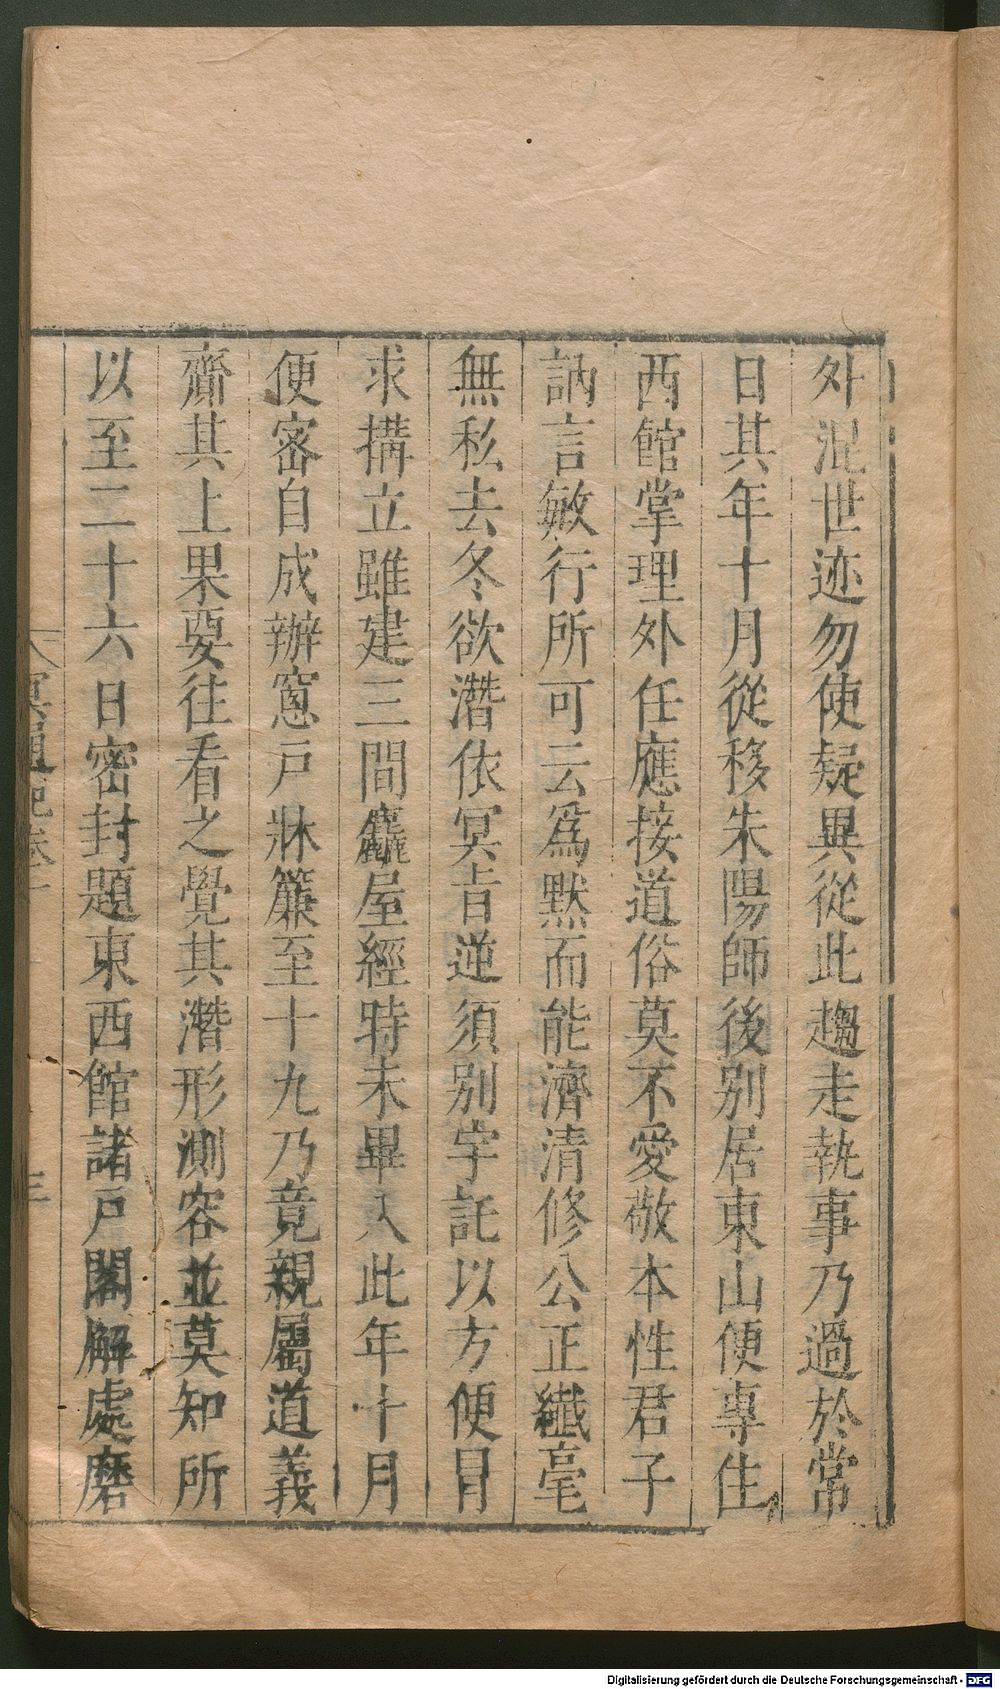 外混世迹勿使疑異從此趨走執事乃過於常
日其年十月從移朱陽師後別居東山便專住
西館掌理外任應接道俗莫不愛敬本性君子
訥言敏行所可云爲黙而能濟清修公正纖毫
無私去冬欲潛依冥旨逆須别宇託以方便冒
求構立雖建三間麤屋經時未畢入此年十月
便密自成辦窓戸牀簾至十九乃竟親屬道義
齋其上果要往看之覺其潛形測容並莫知所
以至二十六日密封題東西館諸戸閣解處磨
冥通記卷一
三
Digitalisierung gefördert durch die Deutsche Forschungsgemeinschaft - DFG